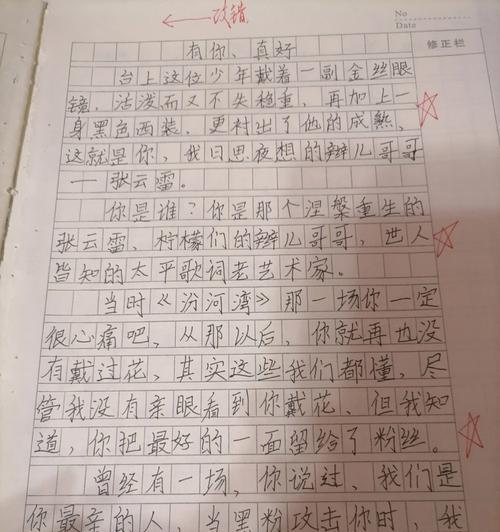 改错
No
Date
修正栏
有你、真好
台上这位少年戴着一副金丝眼
镜，活泼而又不失稳重，再加上一
身黑色西装，更衬出了他的成熟、
这就是你，我日思夜想的辫儿哥哥
—张云雷。
你是谁？你是那个涅槃重生的
张云雷、柠檬们的辫儿哥哥，世人
皆知的太平歌词老艺术家。
当时《汾河湾》那一场你一定
很心痛吧，从那以后，你就再也没
有戴过花，其实这些我们都懂，尽
管我没有亲眼看到你戴花、但我知
道，你把最好的一面留给了粉丝。
曾经有一场，你说过、我们是
你最亲的人，当黑粉攻击你时，我